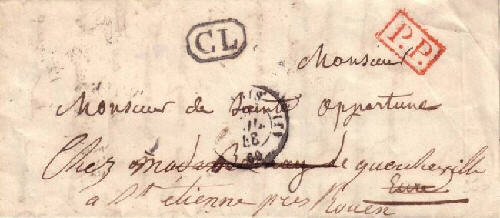 CL
P.P.
Monsieur
Monsieur de Sainte Opportune
Chez madame de queucheville
Eure
a St étienne pres Rouen